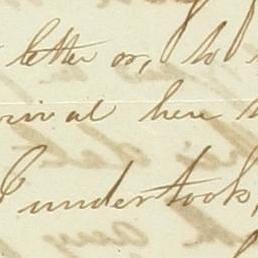 letter or, to
rival here
I undertook,